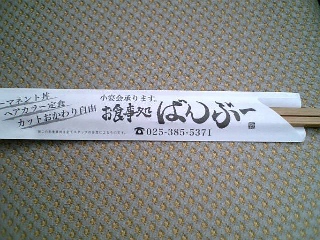 ーマネント丼
ヘアカラー定食
カットおかわり自由
小宴会承ります。
お食事処 ばんぶー
☎025-385-5371